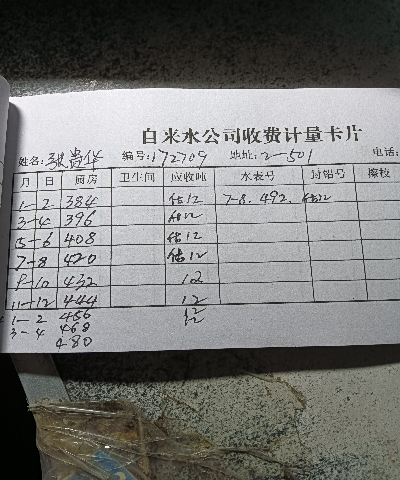 自来水公司收费计量卡片
姓名:张贵华 编号:172709 地址:2-501 电话:
月 日 厨房 卫生间 应收吨 水表号 封铅号 擦校
1-2 384 估12 7-8.492. 估12
3-4 396 估12
5-6 408 估12
7-8 420 估12
9-10 432 12
11-12 444 12
1-2 456
3-4 468
480